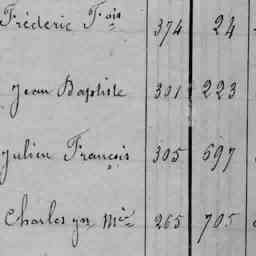 Fréderic Fois 374 24
Jean Baptiste 301 223
Julien François 305 697
Charles yn Mie 265 705